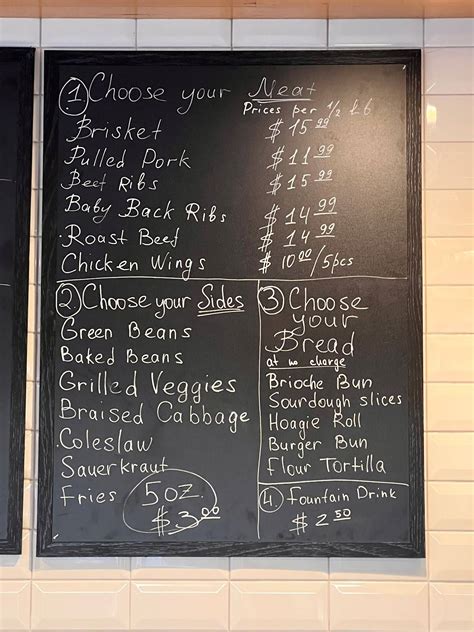 ① Choose your Meat
Prices per 1/2 Lb
Brisket $15.99
Pulled Pork $11.99
Beef Ribs $15.99
Baby Back Ribs $14.99
Roast Beef $14.99
Chicken Wings $10.00/5pcs
② Choose your Sides
Green Beans
Baked Beans
Grilled Veggies
Braised Cabbage
Coleslaw
Sauerkraut
Fries
5oz.
$3.00
③ Choose
your
Bread
at no charge
Brioche Bun
Sourdough slices
Hoagie Roll
Burger Bun
Flour Tortilla
④ Fountain Drink
$2.50